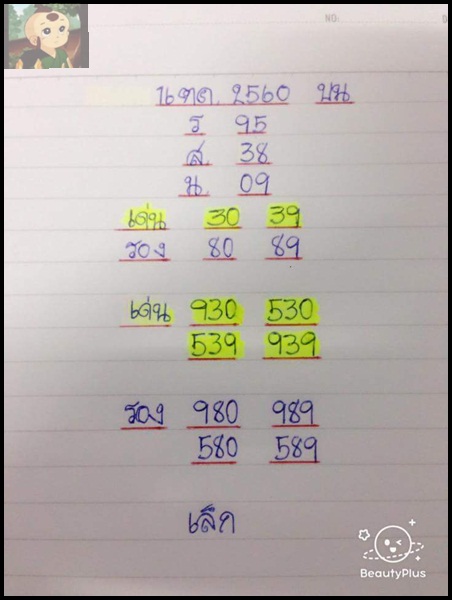 NO.
D
1 พ.ค. 2560 บน
ร 95
ส. 38
น. 09
เด่น 30 39
รอง 80 89
เด่น 930 530
539 939
รอง 980 989
580 589
เล็ก
BeautyPlus